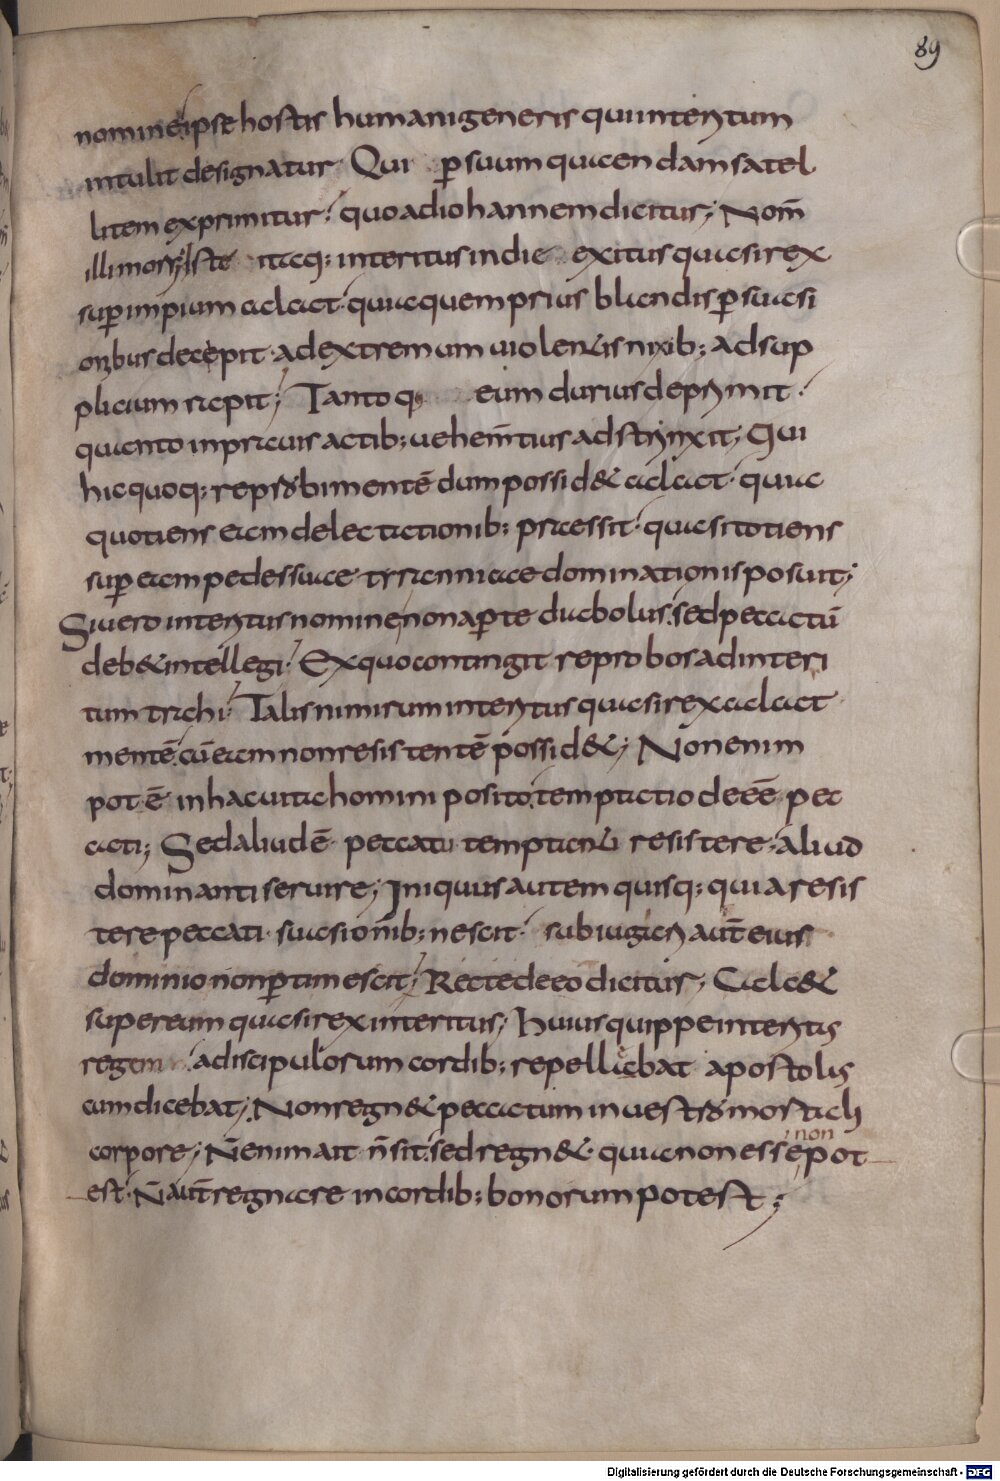 89
nomine ipse hostis humani generis qui interitum
intulit designatur· Qui p̱ suum quendam satel
litem exprimitur; quo ad iohannem dicitur; Nom̄
illi mors; Iste itaq; interitus in die exitus quasi rex
sup̱ impium calcat· quia quem prius blandis p̱suasi
onibus decepit· ad extremum uiolentis nixib; ad sup
plicium rapit; Tantoq; eum durius deprimit·
quanto in prauis actib; uehem̄tius adstrinxit; Qui
hic quoq; reprobi mentē dum possid& calcat· quia
quotiens eam delectationib; praessit· quasi totiens
sup̱ eam pedes suae tyranniae dominationis posuit;
Si uero interitus nomine non ap̱te diabolus sed peccatū
deb& intellegi· Ex quo contingit reprobos ad interi
tum trahi; Talis nimirum interitus quasi rex calcat
mentē cū eam non resistentē possid&; Non enim
pot·ē in hac uita homini posito temptatio deeē pec
cati; Sed aliud ē peccati temptanti resistere· aliud
dominanti seruire; Iniquus autem quisq; quia resis
tere peccati suasionib; nescit· subiugari aut̄ eius
dominio non p̱timescit; Recte de eo dicitur; Calc&
super eum quasi rex interitus; Huius quippe interitus
regem a discipulorum cordib; repellebat apostolus
cum dicebat; Non regn& peccatum in uestro mortali
corpore; N̄ enim ait n̄ sit· sed regn&· quia non esse non pot
est· N̄ aut̄ regnare in cordib; bonorum potest;
Digitalisierung gefördert durch die Deutsche Forschungsgemeinschaft - DFG